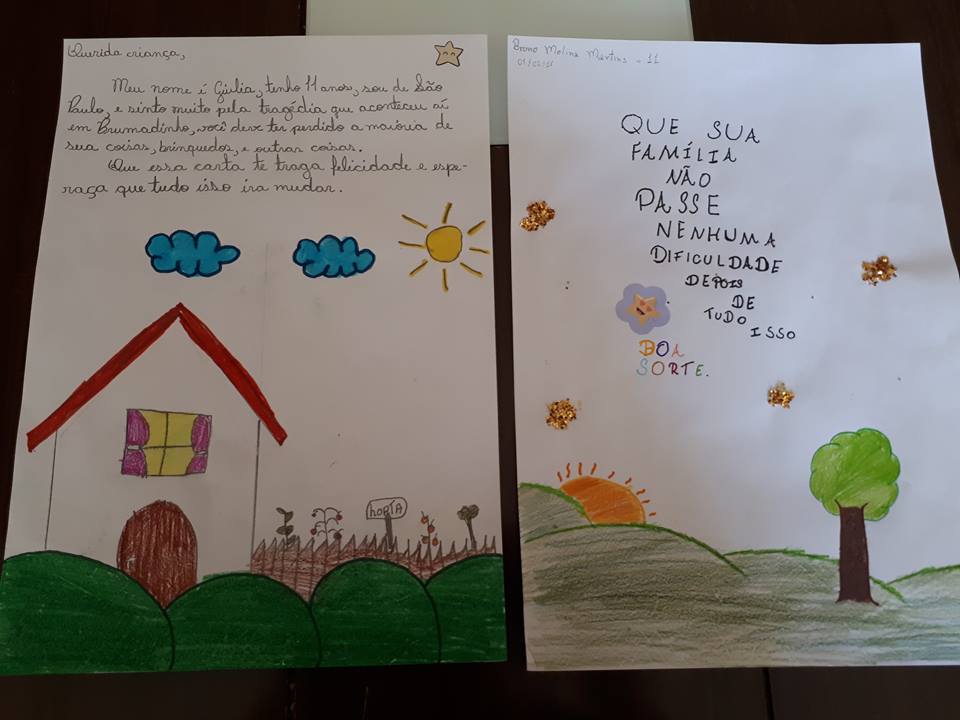 Querida criança,
Meu nome é Giulia, tenho 11 anos, sou de São
Paulo, e sinto muito pela tragédia que aconteceu aí
em Brumadinho, você deve ter perdido a maioria de
sua coisas, brinquedos, e outras coisas.
Que essa carta te traga felicidade e espe-
raça que tudo isso ira mudar.
horta
Bruno Molina Martins - 11
QUE SUA
FAMÍLIA
NÃO
PASSE
NENHUMA
DIFICULDADE
DEPOIS
DE
TUDO
ISSO
BOA
SORTE.